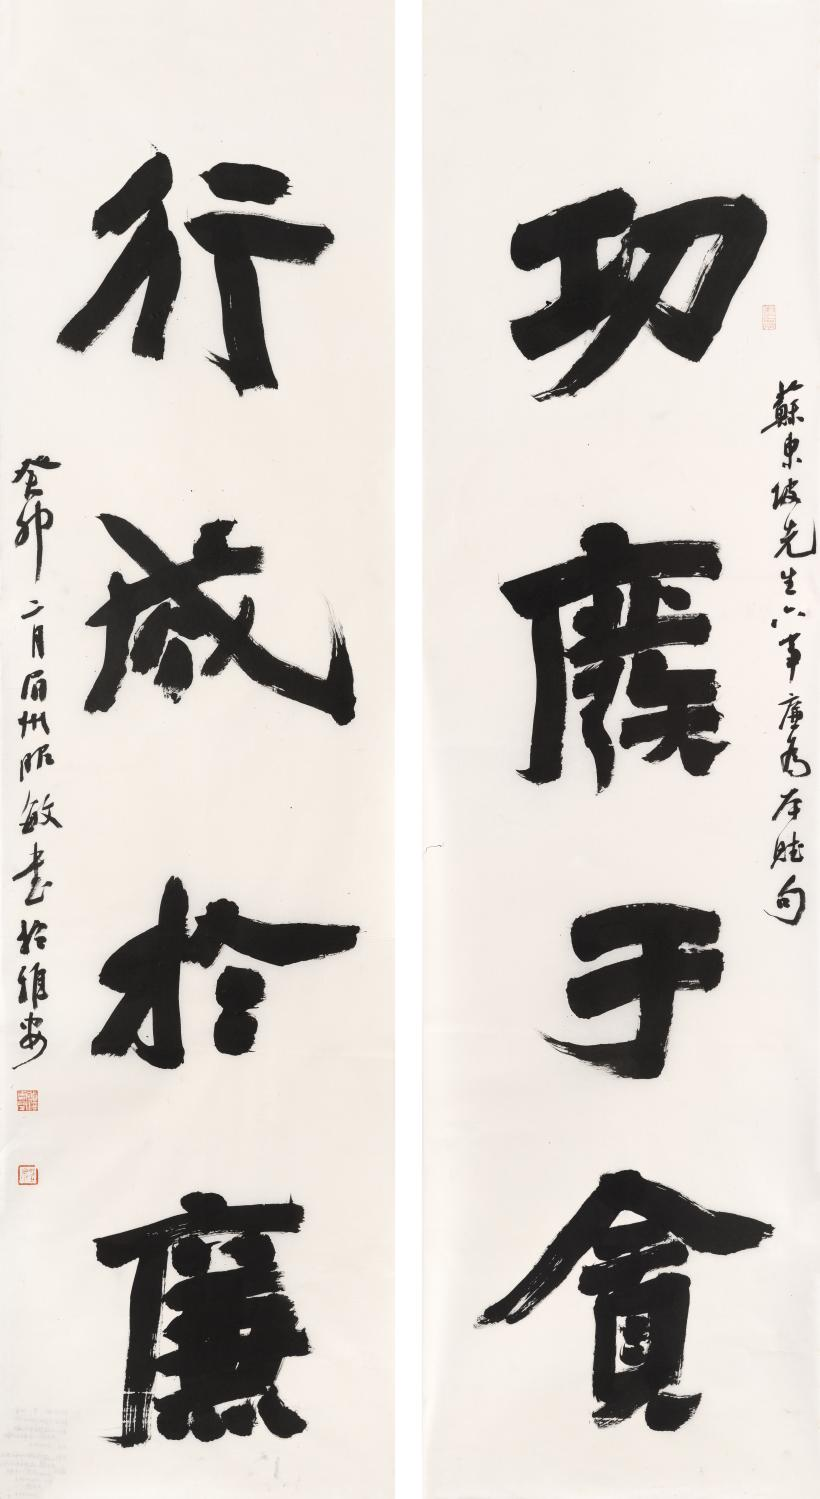 蘇東坡先生六事廉為本賦句
功廢于貪
行成於廉
癸卯二月眉州昭敏書於雅安